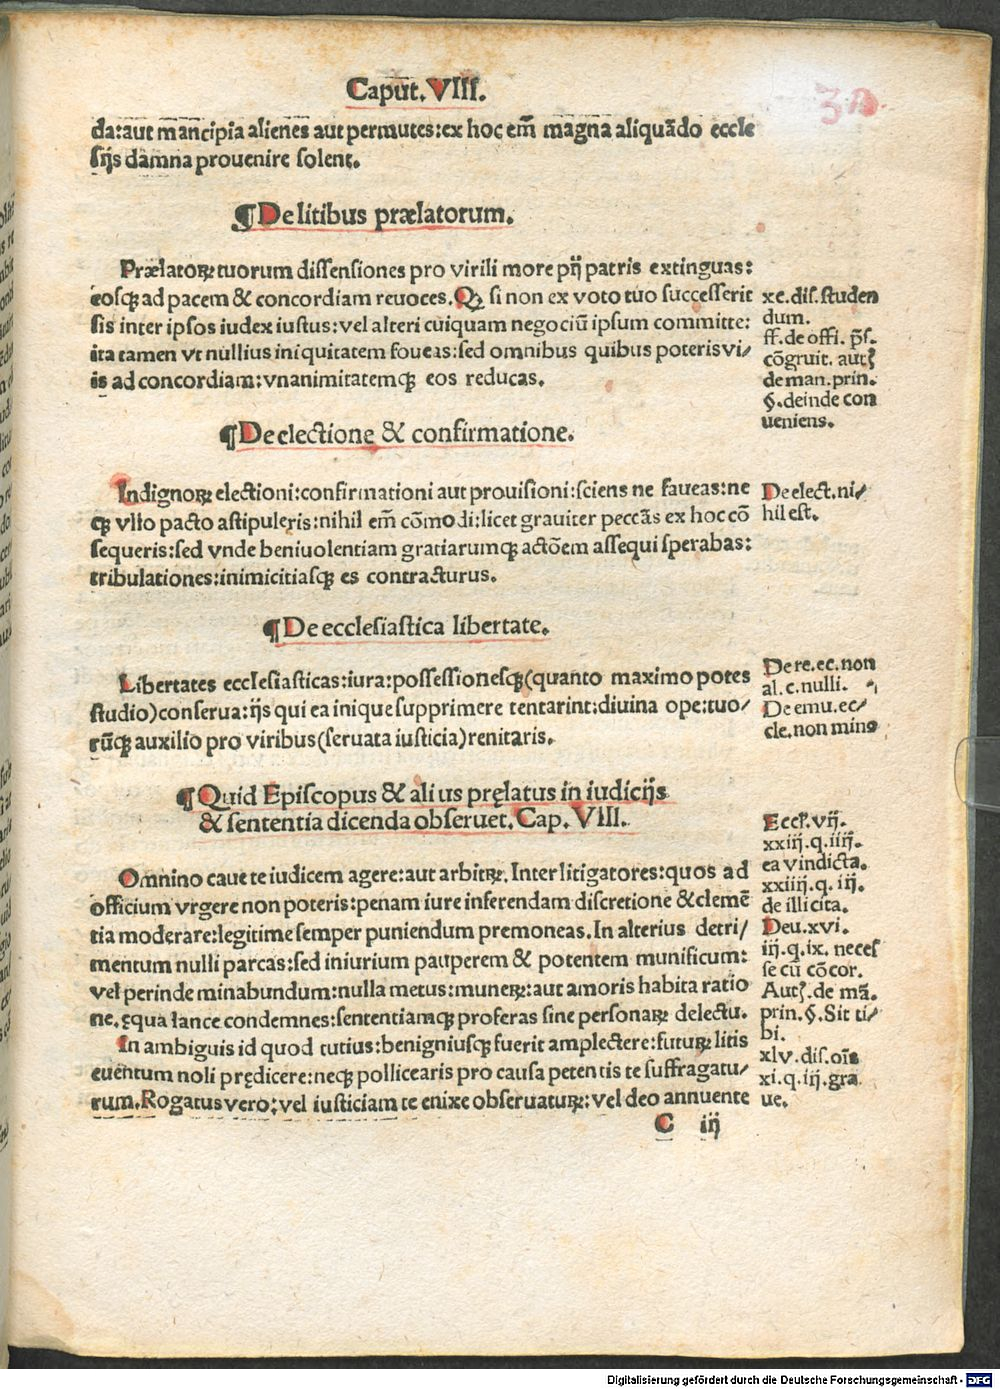 Caput. VIII.
da: aut mancipia alienes aut permutes: ex hoc em̄ magna aliquādo eccle
sijs damna prouenire solent.
¶ De litibus prælatorum.
Prælatoꝝ tuorum dissensiones pro virili more pij patris extinguas:
eosqꝫ ad pacem & concordiam reuoces. Qꝫ si non ex voto tuo successerit
sis inter ipsos iudex iustus: vel alteri cuiquam negociū ipsum committe:
ita tamen vt nullius iniquitatem foueas: sed omnibus quibus poteris vi/
is ad concordiam: vnanimitatemqꝫ eos reducas.
xc. dis. studen
dum.
ff. de offi. p̄s.
cōgruit. autꝭ
de man. prin.
§. deinde con
ueniens.
¶ De electione & confirmatione.
Indignoꝝ electioni: confirmationi aut prouisioni: sciens ne faueas: ne
qꝫ vllo pacto astipuleris: nihil em̄ cōmodi: licet grauiter peccās ex hoc cō
sequeris: sed vnde beniuolentiam gratiarumqꝫ actōem assequi sperabas:
tribulationes: inimicitiasqꝫ es contracturus.
De elect. ni/
hil est.
¶ De ecclesiastica libertate.
Libertates ecclesiasticas: iura: possessionesqꝫ (quanto maximo potes
studio) conserua: ijs qui ea inique supprimere tentarint: diuina ope: tuo/
rūqꝫ auxilio pro viribus (seruata iusticia) renitaris.
De re. ec. non
al. c. nulli.
De emu. ec/
cle. non minꝰ
¶ Quid Episcopus & alius prelatus in iudicijs
& sententia dicenda obseruet. Cap. VIII.
Omnino caue te iudicem agere: aut arbitꝝ. Inter litigatores: quos ad
officium vrgere non poteris: penam iure inferendam discretione & clemē
tia moderare: legitime semper puniendum premoneas. In alterius detri/
mentum nulli parcas: sed iniurium pauperem & potentem munificum:
vel perinde minabundum: nulla metus: muneꝝ: aut amoris habita ratio
ne. ęqua lance condemnes: sententiamqꝫ proferas sine personaꝝ delectu.
In ambiguis id quod tutius: benigniusqꝫ fuerit amplectere: futuꝝ litis
euentum noli prędicere: neqꝫ pollicearis pro causa petentis te suffragatu/
rum. Rogatus vero: vel iusticiam te enixe obseruatuꝝ: vel deo annuente
Eccl. vij.
xxiij. q. iiij.
ea vindicta.
xxiiij. q. iij.
de illicita.
Deu. xvi.
iij. q. ix. necesſ
se cū cōcor.
Autꝭ. de mā.
prin. §. Sit ti/
bi.
xlv. dis. oīs
xi. q. iij. gra
ue.
C iij
Digitalisierung gefördert durch die Deutsche Forschungsgemeinschaft - DFG